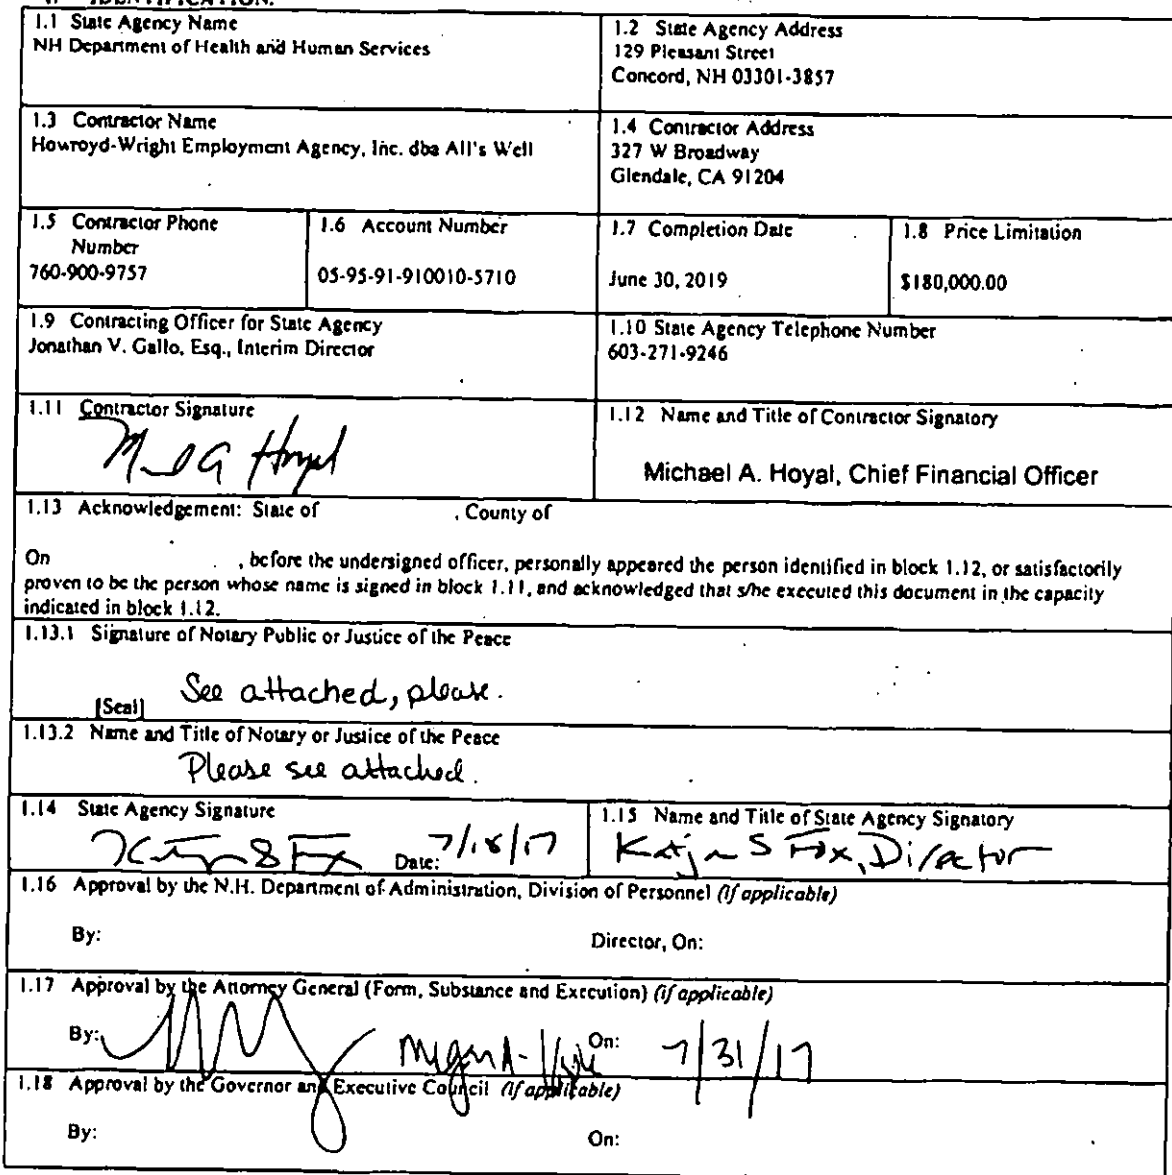 IDENTIFICATION.
1.1 State Agency Name
NH Department of Health and Human Services
1.2 State Agency Address
129 Pleasant Street
Concord, NH 03301-3857
1.3 Contractor Name
Howroyd-Wright Employment Agency, Inc. dba All's Well
1.4 Contractor Address
327 W Broadway
Glendale, CA 91204
1.5 Contractor Phone
Number
760-900-9757
1.6 Account Number
05-95-91-910010-5710
1.7 Completion Date
June 30, 2019
1.8 Price Limitation
$180,000.00
1.9 Contracting Officer for State Agency
Jonathan V. Gallo, Esq., Interim Director
1.10 State Agency Telephone Number
603-271-9246
1.11 Contractor Signature
1.12 Name and Title of Contractor Signatory
Michael A. Hoyal, Chief Financial Officer
1.13 Acknowledgement: State of , County of
On , before the undersigned officer, personally appeared the person identified in block 1.12, or satisfactorily
proven to be the person whose name is signed in block 1.11, and acknowledged that s/he executed this document in the capacity
indicated in block 1.12.
1.13.1 Signature of Notary Public or Justice of the Peace
[Seal] See attached, please.
1.13.2 Name and Title of Notary or Justice of the Peace
Please see attached.
1.14 State Agency Signature
Date: 7/18/17
1.15 Name and Title of State Agency Signatory
Katja S Fox, Director
1.16 Approval by the N.H. Department of Administration, Division of Personnel (if applicable)
By: Director, On:
1.17 Approval by the Attorney General (Form, Substance and Execution) (if applicable)
By: On: 7/31/17
1.18 Approval by the Governor and Executive Council (if applicable)
By: On: